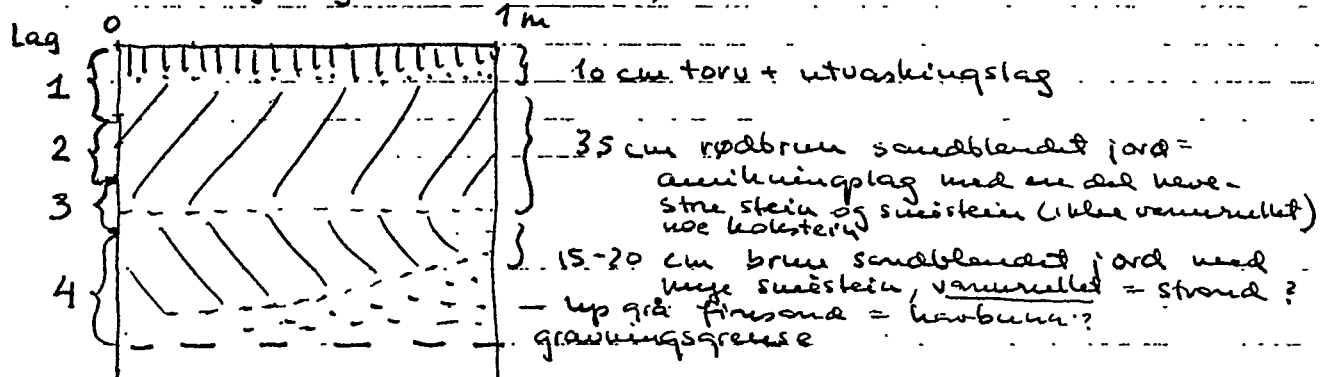 0 1 m
Lag
1
2
3
4
10 cm torv + utvaskingslag
35 cm rødbrun sandblandet jord =
anrikningslag med en del neve-
store stein og småstein (ikke vannrullet)
noe kokstein
15-20 cm brun sandblandet jord med
mye småstein, vannrullet = strand ?
lys grå finsand = havbunn ?
gravningsgrense